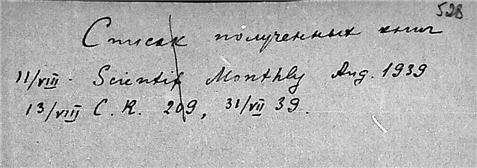 528
Список полученных книг
11/VIII - Scientif Monthly Aug. 1939
13/VIII C. R. 209, 31/VII 39.